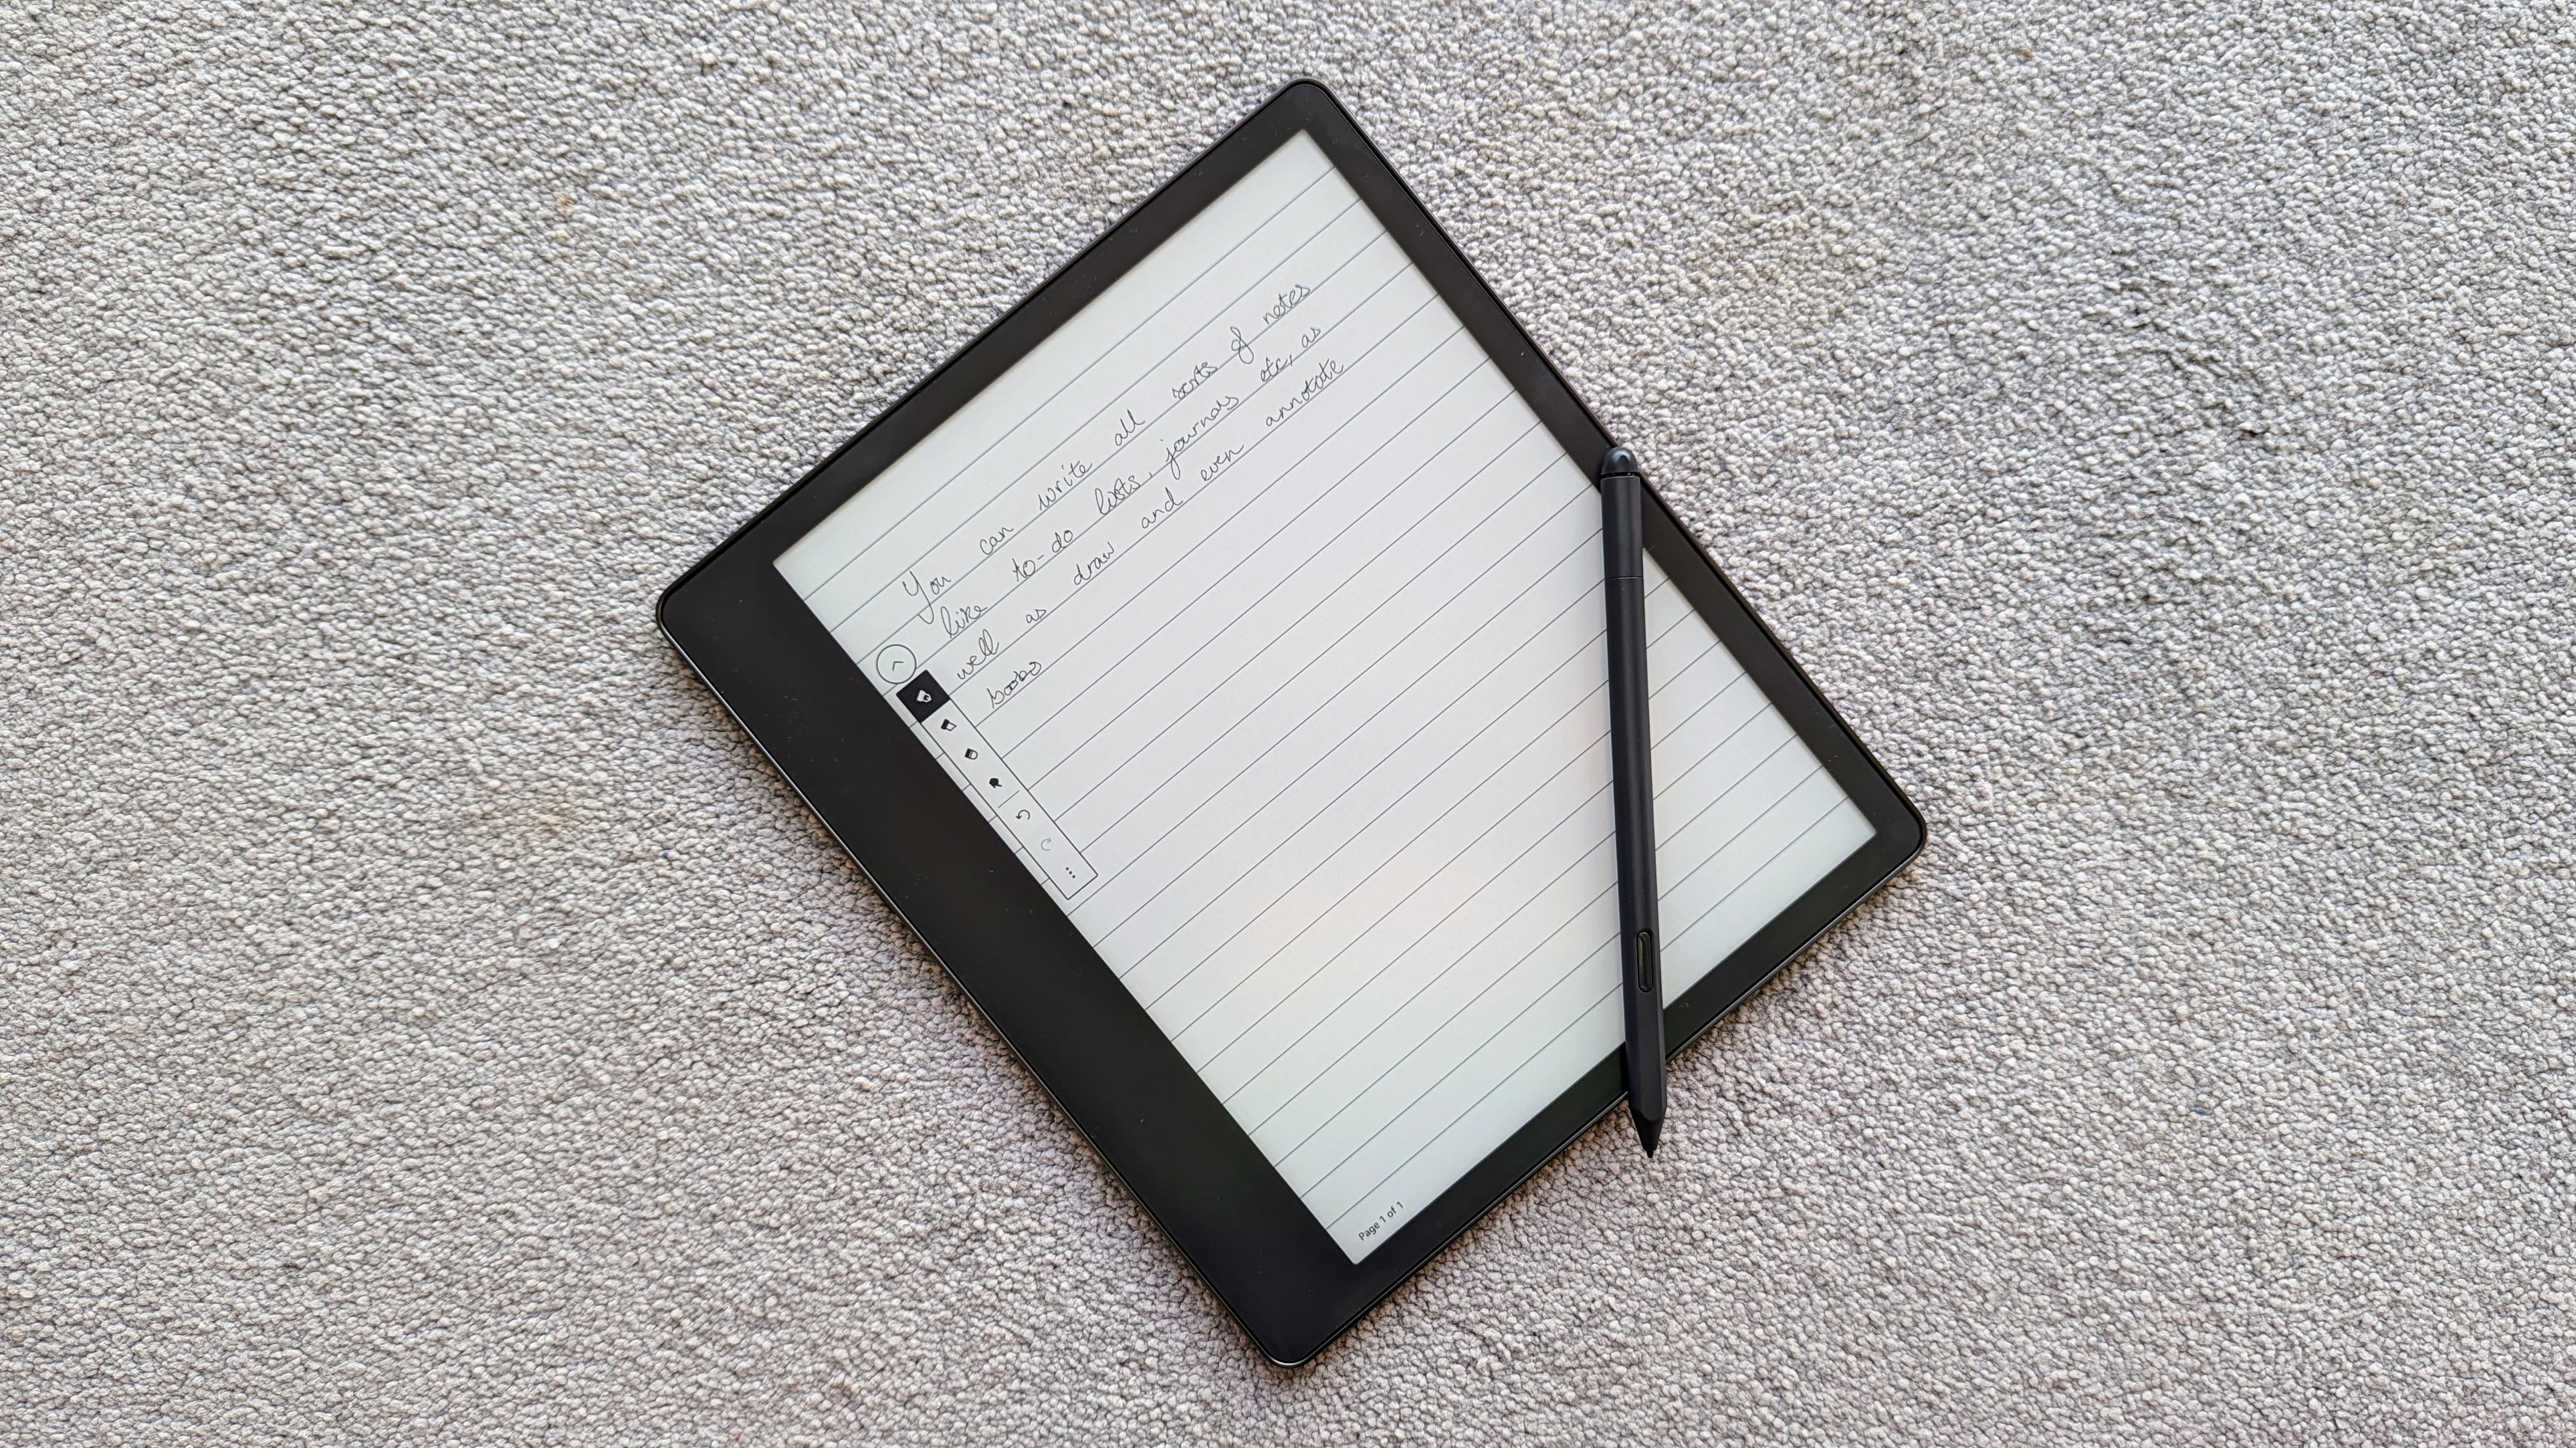 You can write all sorts of notes
like to-do lists, journals etc, as
well as draw and even annotate
books
Page 1 of 1